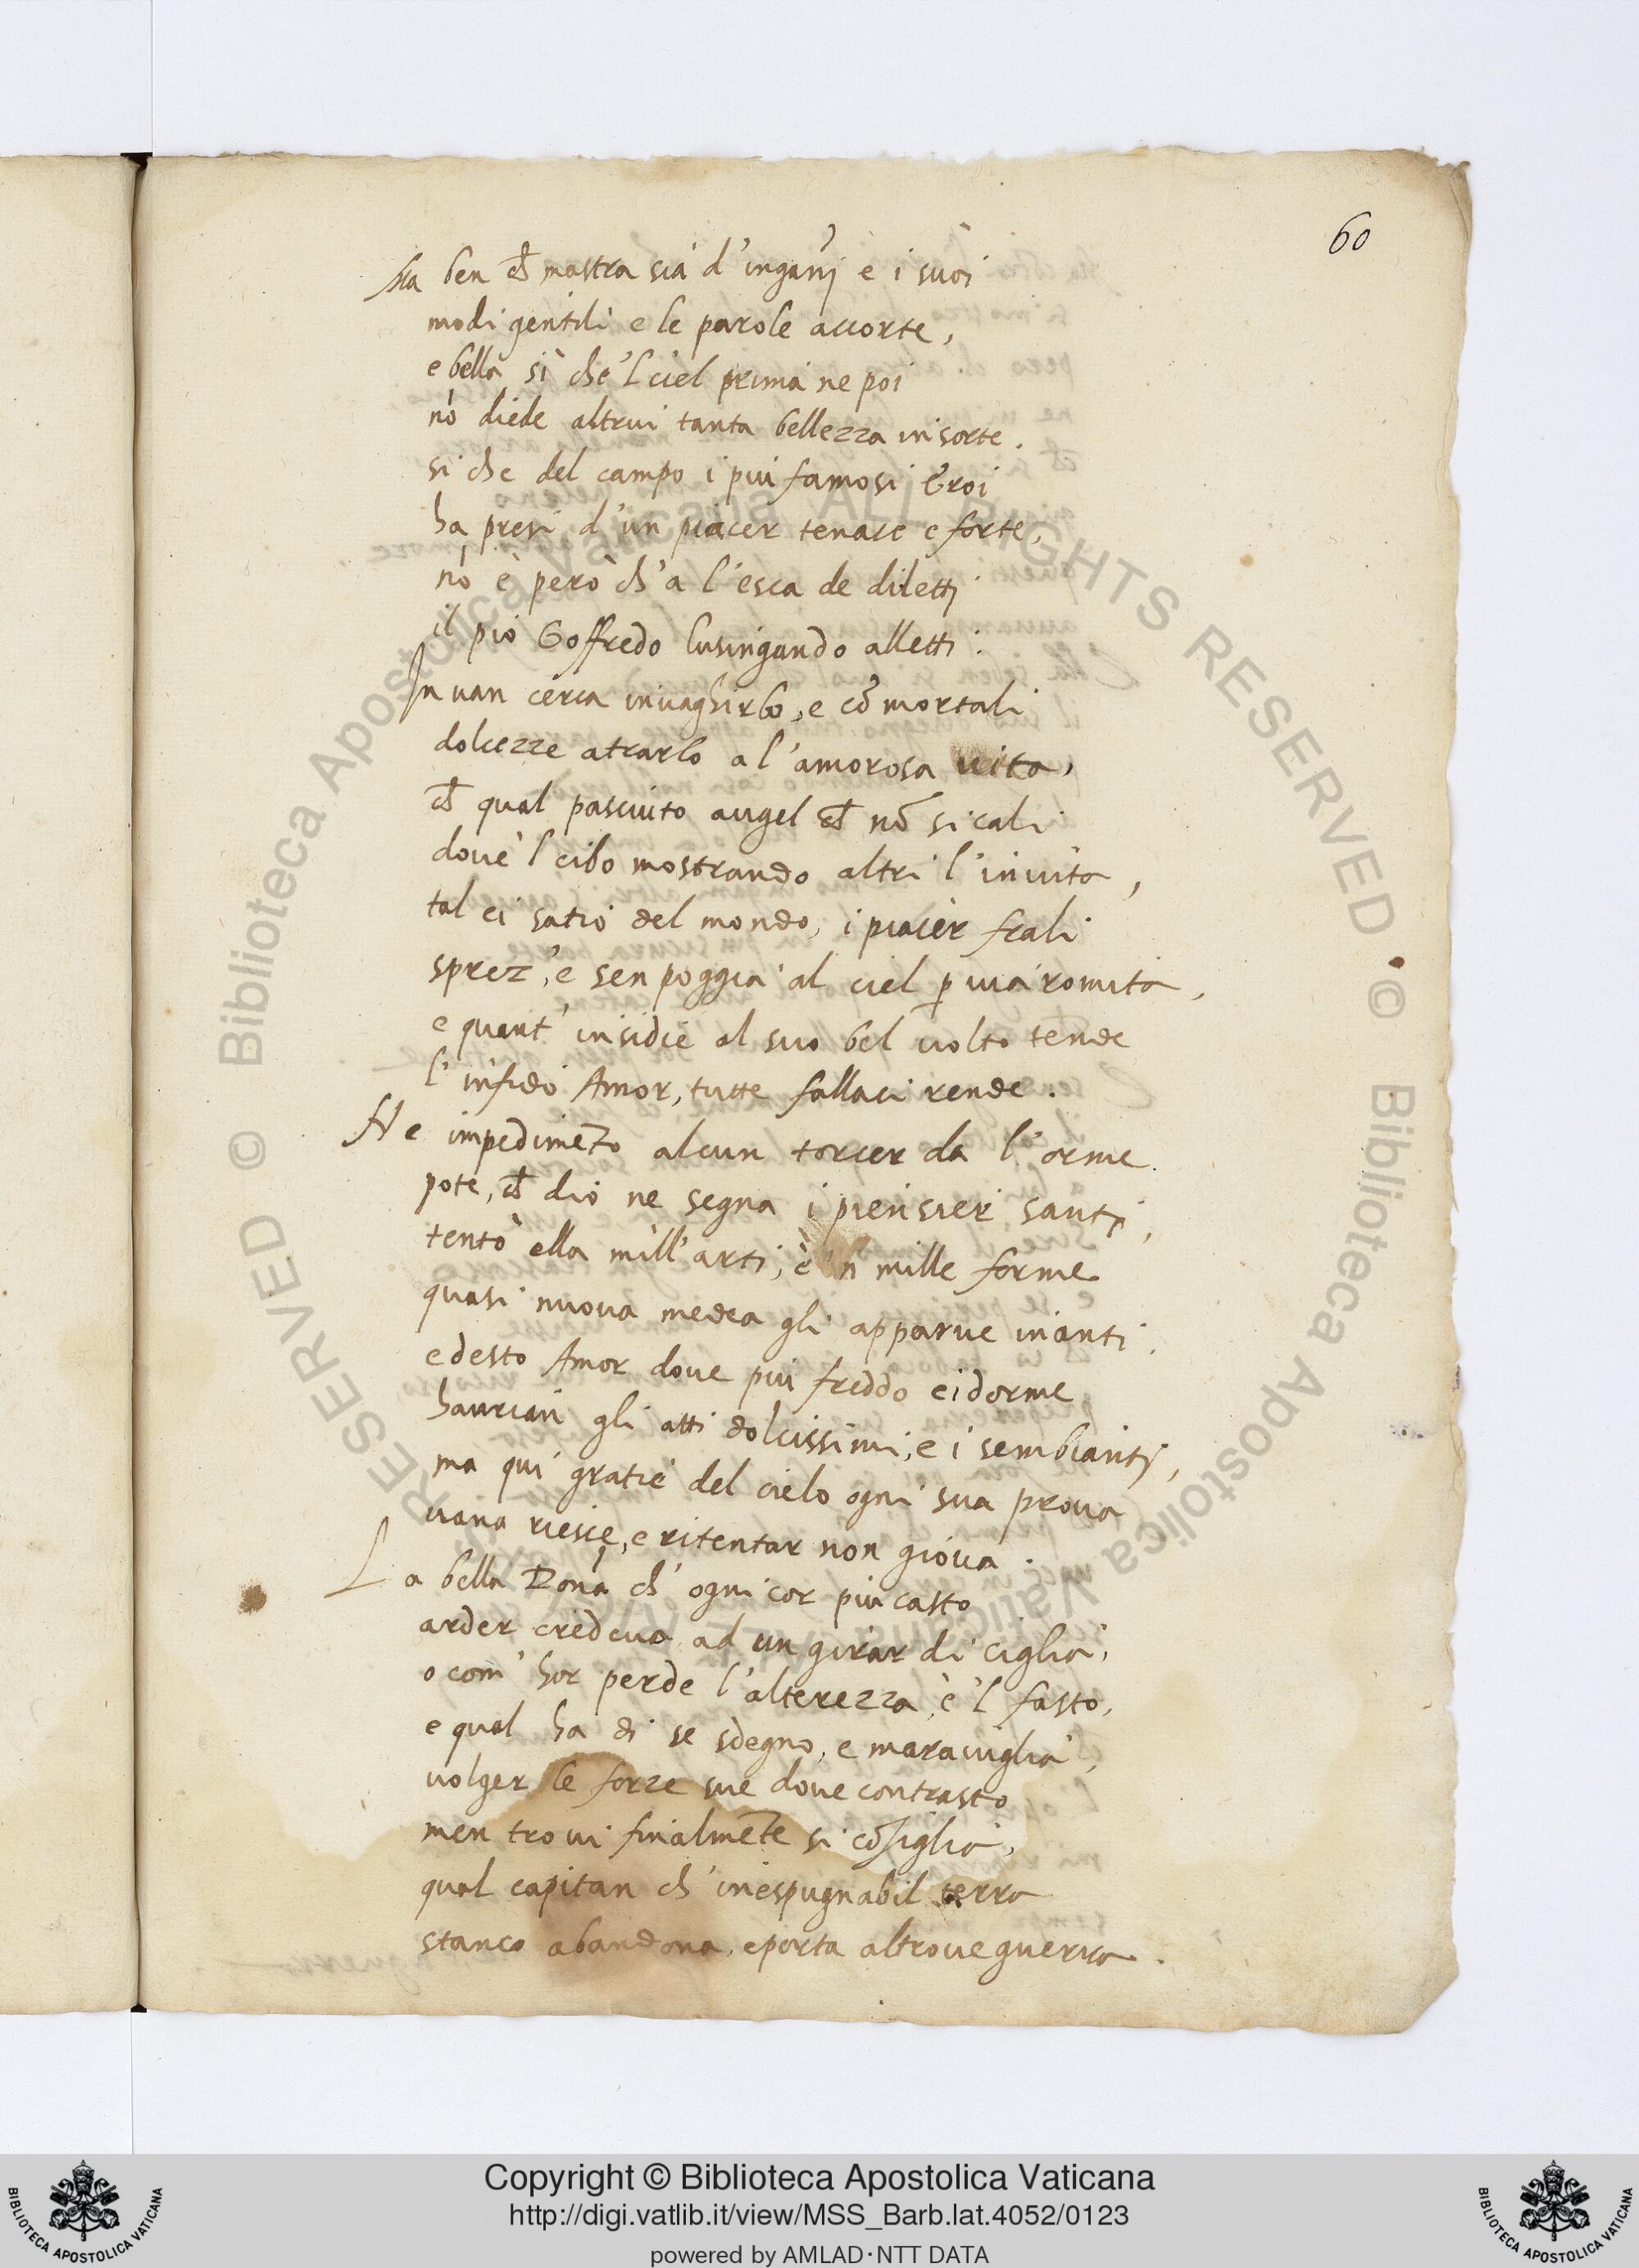 60
Ma ben ch̃ mastra sia d'ingañi e i suoi
modi gentili e le parole accorte,
e bella sì che'l ciel prima ne poi
nõ diede altrui tanta bellezza in sorte.
si che del campo i piu famosi Eroi
ha presi d'un piacer tenace e forte,
nõ è però ch'a l'esca de diletti
il pio Goffredo lusingando alletti:
In uan cerca inuaghirlo, e cõ mortali
dolcezze atrarlo a l'amorosa uita,
ch̃ qual pasciuto augel ch̃ nõ si cali
doue'l cibo mostrando altri l'inuita,
tal ei satio del mondo, i piacer frali
sprez', e sen poggia al ciel p̱ uia romita,
e quant' insidie al suo bel uolto tende
l'infido Amor, tutte fallaci rende.
Ne impedimẽto alcun torcer da l'orme
pote, ch̃ dio ne segna i piensier santi,
tentò ella mill'arti, e'n mille forme
quasi nuoua medea gli apparue inanti.
e desto Amor doue piu freddo ei dorme
haurian gli atti dolcissimi, e i sembianti,
ma qui gratie del cielo ogni sua proua
uana riesce, e ritentar non gioua.
La bella Doña ch' ogni cor piu casto
arder credeua ad un girar di ciglia,
o com' hor perde l'alterezza, e'l fasto,
e qual ha di se sdegno, e marauiglia,
uolger le forze sue doue contrasto
men troui finalmẽte si cõsiglia,
qual capitan ch' inespugnabil terra
stanco abandona, e porta altroue guerra.
© Biblioteca Apostolica Vaticana ALL RIGHTS RESERVED
© Biblioteca Apostolica Vaticana ALL RIGHTS RESERVED
BIBLIOTECA APOSTOLICA VATICANA
Copyright © Biblioteca Apostolica Vaticana
http://digi.vatlib.it/view/MSS_Barb.lat.4052/0123
powered by AMLAD·NTT DATA
BIBLIOTECA APOSTOLICA VATICANA